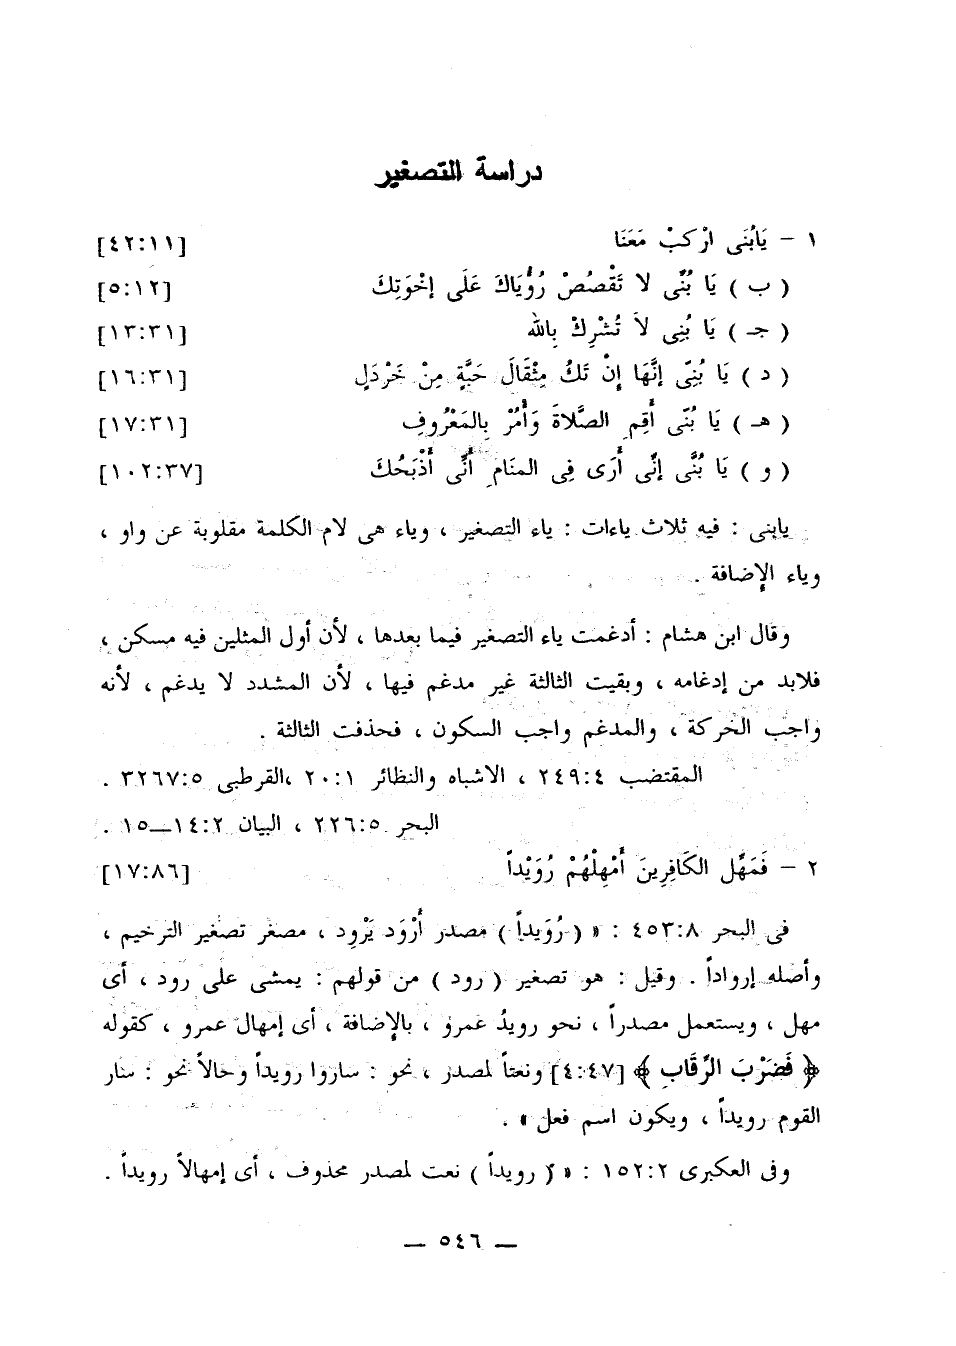 دراسة التصغير
١ – يَابُنَى ارْكبْ مَعَنَا [٤٢:١١]
( ب ) يَا بُنَّى لا تَقْصُصْ رُؤْيَاكَ عَلَى إخْوَتِكَ [٥:١٢]
( جـ ) يَا بُنِى لاَ تُشْرِكْ بِالله [١٣:٣١]
( د ) يَا بُنِّى إنَّهَا إنْ تَكُ مِثْقَالَ حَبَّةٍ مِنْ خَرْدَلٍ [١٦:٣١]
( هـ ) يَا بُنّى أَقِمِ الصَّلاةَ وَأْمُرْ بِالمَعْرُوفِ [١٧:٣١]
( و ) يَا بُنَّى إنّى أَرَى فِى المنَامِ أَنّى أَذْبَحُكَ [١٠٢:٣٧]
يابنى : فيه ثلاث ياءات : ياء التصغير ، وياء هى لام الكلمة مقلوبة عن واو ،
وياء الإضافة .
وقال ابن هشام : أدغمت ياء التصغير فيما بعدها ، لأن أول المثلين فيه مسكن ،
فلابد من إدغامه ، وبقيت الثالثة غير مدغم فيها ، لأن المشدد لا يدغم ، لأنه
واجب الحركة ، والمدغم واجب السكون ، فحذفت الثالثة .
المقتضب ٢٤٩:٤ ، الاشباه والنظائر ٢٠:١ ،القرطبى ٣٢٦٧:٥ .
البحر ٢٢٦:٥ ، البيان ١٤:٢—١٥ .
٢ – فَمَهِّل الكَافِرِينَ أَمْهِلْهُمْ رُوَيْداً [١٧:٨٦]
فى البحر ٤٥٣:٨ : « ( رُوَيداً ) مصدر أَرْوَد يَرْوِد ، مصغر تصغير الترخيم ،
وأصله إرواداً . وقيل : هو تصغير ( رود ) من قولهم : يمشى على رود ، أى
مهل ، ويستعمل مصدراً ، نحو رويدُ عمرو ، بالإضافة ، أى إمهال عمرو ، كقوله
﴿ فَضَرْبَ الرِّقَابِ ﴾ [٤:٤٧] ونعتاً لمصدر ، نحو : ساروا رويداً وحالاً نحو : سار
القوم رويداً ، ويكون اسم فعل » .
وفى العكبرى ١٥٢:٢ : « ( رويداً ) نعت لمصدر محذوف ، أى إمهالاً رويداً .
— ٥٤٦ —